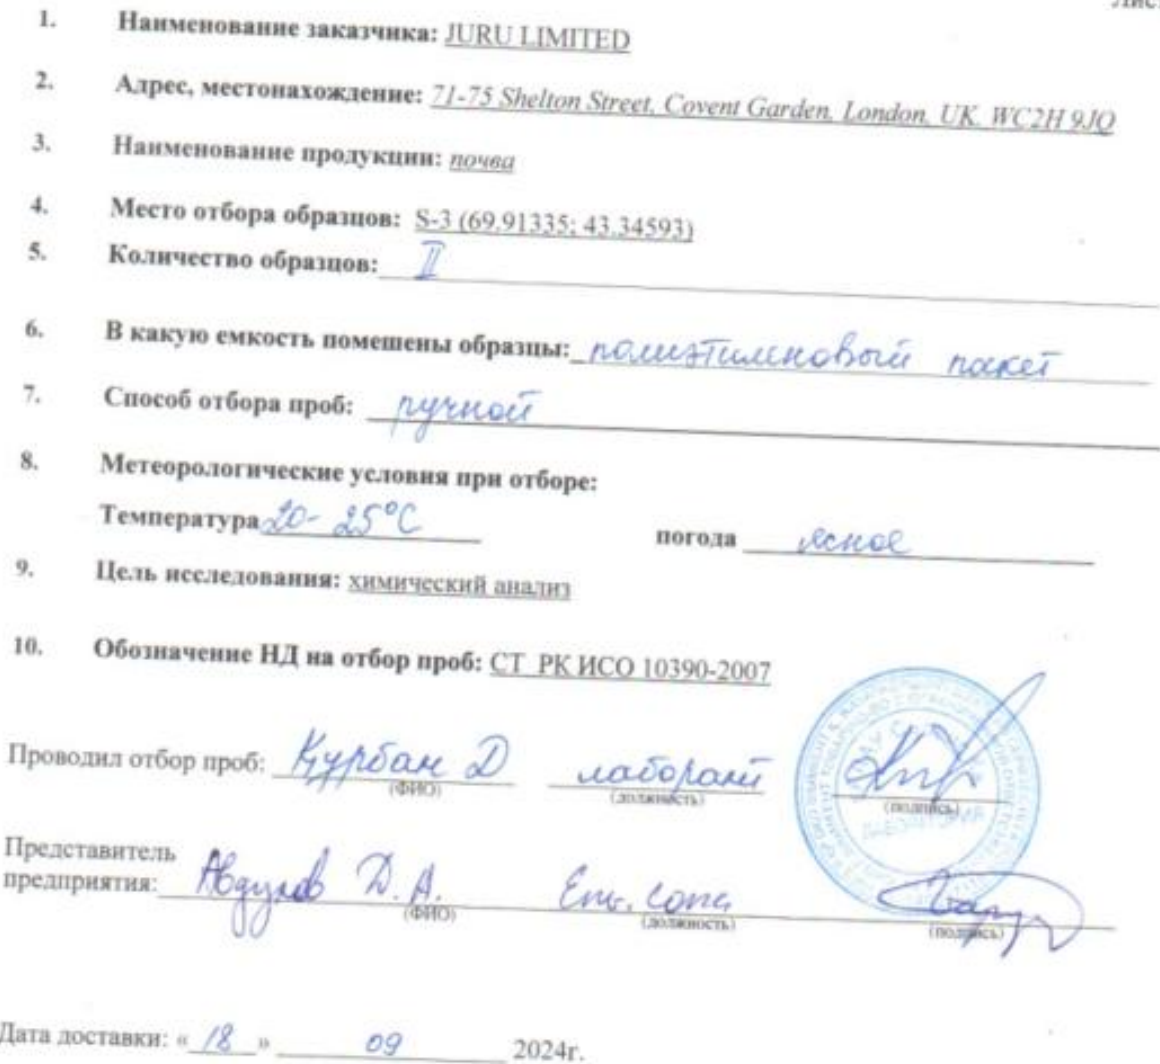 1. Наименование заказчика: JURU LIMITED
2. Адрес, местонахождение: 71-75 Shelton Street, Covent Garden, London, UK, WC2H 9JQ
3. Наименование продукции: почва
4. Место отбора образцов: S-3 (69.91335; 43.34593)
5. Количество образцов: II
6. В какую емкость помешены образцы: полиэтиленовый пакет
7. Способ отбора проб: ручной
8. Метеорологические условия при отборе:
Температура 20- 25°C погода ясное
9. Цель исследования: химический анализ
10. Обозначение НД на отбор проб: СТ РК ИСО 10390-2007
Проводил отбор проб: Курбан Д лаборант
(ФИО) (должность) (подпись)
Представитель
предприятия: Д. А.
(ФИО) (должность) (подпись)
Дата доставки: « 18 » 09 2024г.